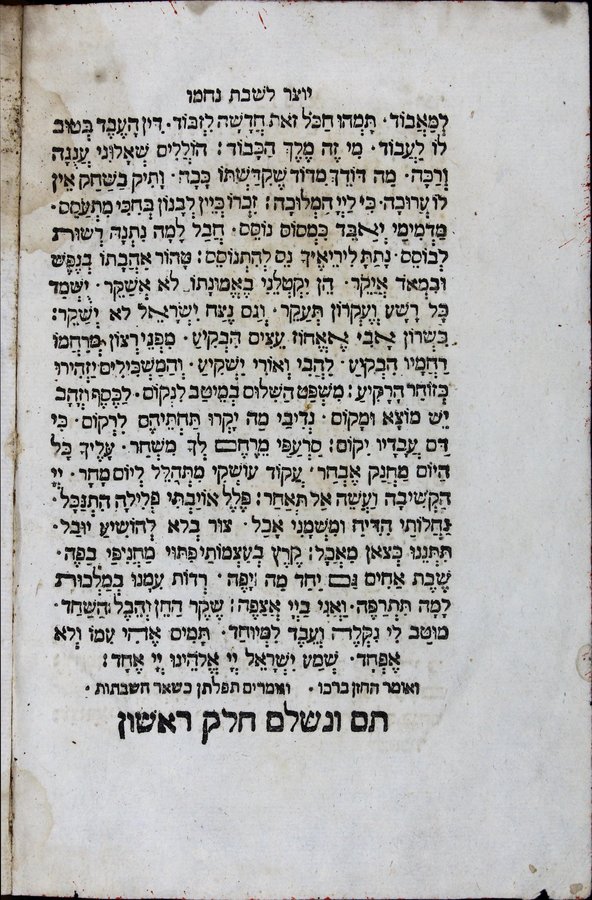 יוצר לשבת נחמו
לְמַאֲבוֹד · תָּמְהוּ חַכֹּל זֹאת חֲדָשָׁה לִזְבּוֹד · דִּין הָעֶבֶד בְּטוּב
לוֹ לַעֲבוֹד · מִי זֶה מֶלֶךְ הַכָּבוֹד : הוֹלְלִים שְׁאָלוּנִי עֲנֻגָּה
וְרַכָּה · מַה דּוֹדֵךְ מִדּוֹד שֶׁקִּדַּשְׁתּוֹ כָּכָה · וָתִיק בַּשַּׁחַק אֵין
לוֹ עֲרוּכָה · כִּי לַיְיָ הַמְּלוּכָה : זִכְרוֹ כְּיֵין לְבָנוֹן בְּחִכִּי מִתְעַסֵּס ·
מַדְמִימַי יְאַבֵּד כִּמְסוֹס נוֹסֵס · חֲבָל לָמָּה נִתְּנָה רְשׁוּת
לְבוֹסֵס · נָתַתָּ לִּירֵיאֶיךָ נֵס לְהִתְנוֹסֵס : טָהוֹר אַהֲבָתוֹ בְּנֶפֶשׁ
וּבִמְאֹד אֲיַקֵּר · הֵן יִקְטְלֵנִי בֶּאֱמוּנָתוֹ לֹא אֲשַׁקֵּר · יֻשְׁמַד
כָּל רָשָׁע וְעֶקְרוֹן תֵּעָקֵר · וְגַם נֵצַח יִשְׂרָאֵל לֹא יְשַׁקֵּר :
בְּשָׁרוֹן אָבִי אֶאֱחוֹז עֵצִים הִבְקִיעַ · מִפְּנֵי רְצוֹן מְרַחֲמוֹ
רַחֲמָיו הִבְקִיעַ · לַהֲבִי וְאוּרִי יַשְׁקִיעַ · וְהַמַּשְׂכִּילִים יַזְהִירוּ
כְּזוֹהַר הָרָקִיעַ : מִשְׁפַּט הַשִּׁלּוּם בְּמֵיטַב לִנְקוֹם · לַכֶּסֶף וְזָהָב
יֵשׁ מוֹצָא וּמָקוֹם · נְדִיבַי מַה יָקְרוּ תַּחְתֵּיהֶם לִרְקוֹם · כִּי
דַּם עֲבָדָיו יִקּוֹם : סַרְעַפַּי מֵרֶחֶם לְךָ מִשְׁחַר · עָלֶיךָ כָּל
הַיּוֹם מַחֲנַק אֶבְחַר · עֲקוֹד עוֹשְׁקִי מִתְהַלֵּל לְיוֹם מָחָר · יְיָ
הַקְשִׁיבָה וַעֲשֵׂה אַל תְּאַחַר : פַּלֵּל אוֹיַבְתִּי פְּלִילָה הִתְנַכֵּל ·
נַחֲלוֹתַי הִדִּיחַ וּמִשְׁמַנַּי אָכַל · צוּר בְּלֹא לְהוֹשִׁיעַ יוּכַל ·
תִּתְּנֵנוּ כְּצֹאן מַאֲכָל : קֶרֶץ בְּעַצְמוֹתַי פִּתּוּי מַחֲנִיפַי בַּפֶּה ·
שֶׁבֶת אַחִים גַּם יַחַד מַה יָפֶה · רְדוֹת עִמָּנוּ בְּמַלְכוּת
לָמָּה תִּתְרַפֶּה · וַאֲנִי בַּיְיָ אֲצַפֶּה : שֶׁקֶר הַחֵן וְהֶבֶל הַשַּׁחַד ·
מוּטָב לִי נִקְלֶה וְעֶבֶד לִמְיוּחָד · תָּמִים אֶהִי עִמּוֹ וְלֹא
אֶפְחָד · שְׁמַע יִשְׂרָאֵל יְיָ אֱלֹהֵינוּ יְיָ אֶחָד :
ואומר החזן ברכו · ואומרים תפלתן כשאר השבתות ·
תם ונשלם חלק ראשון